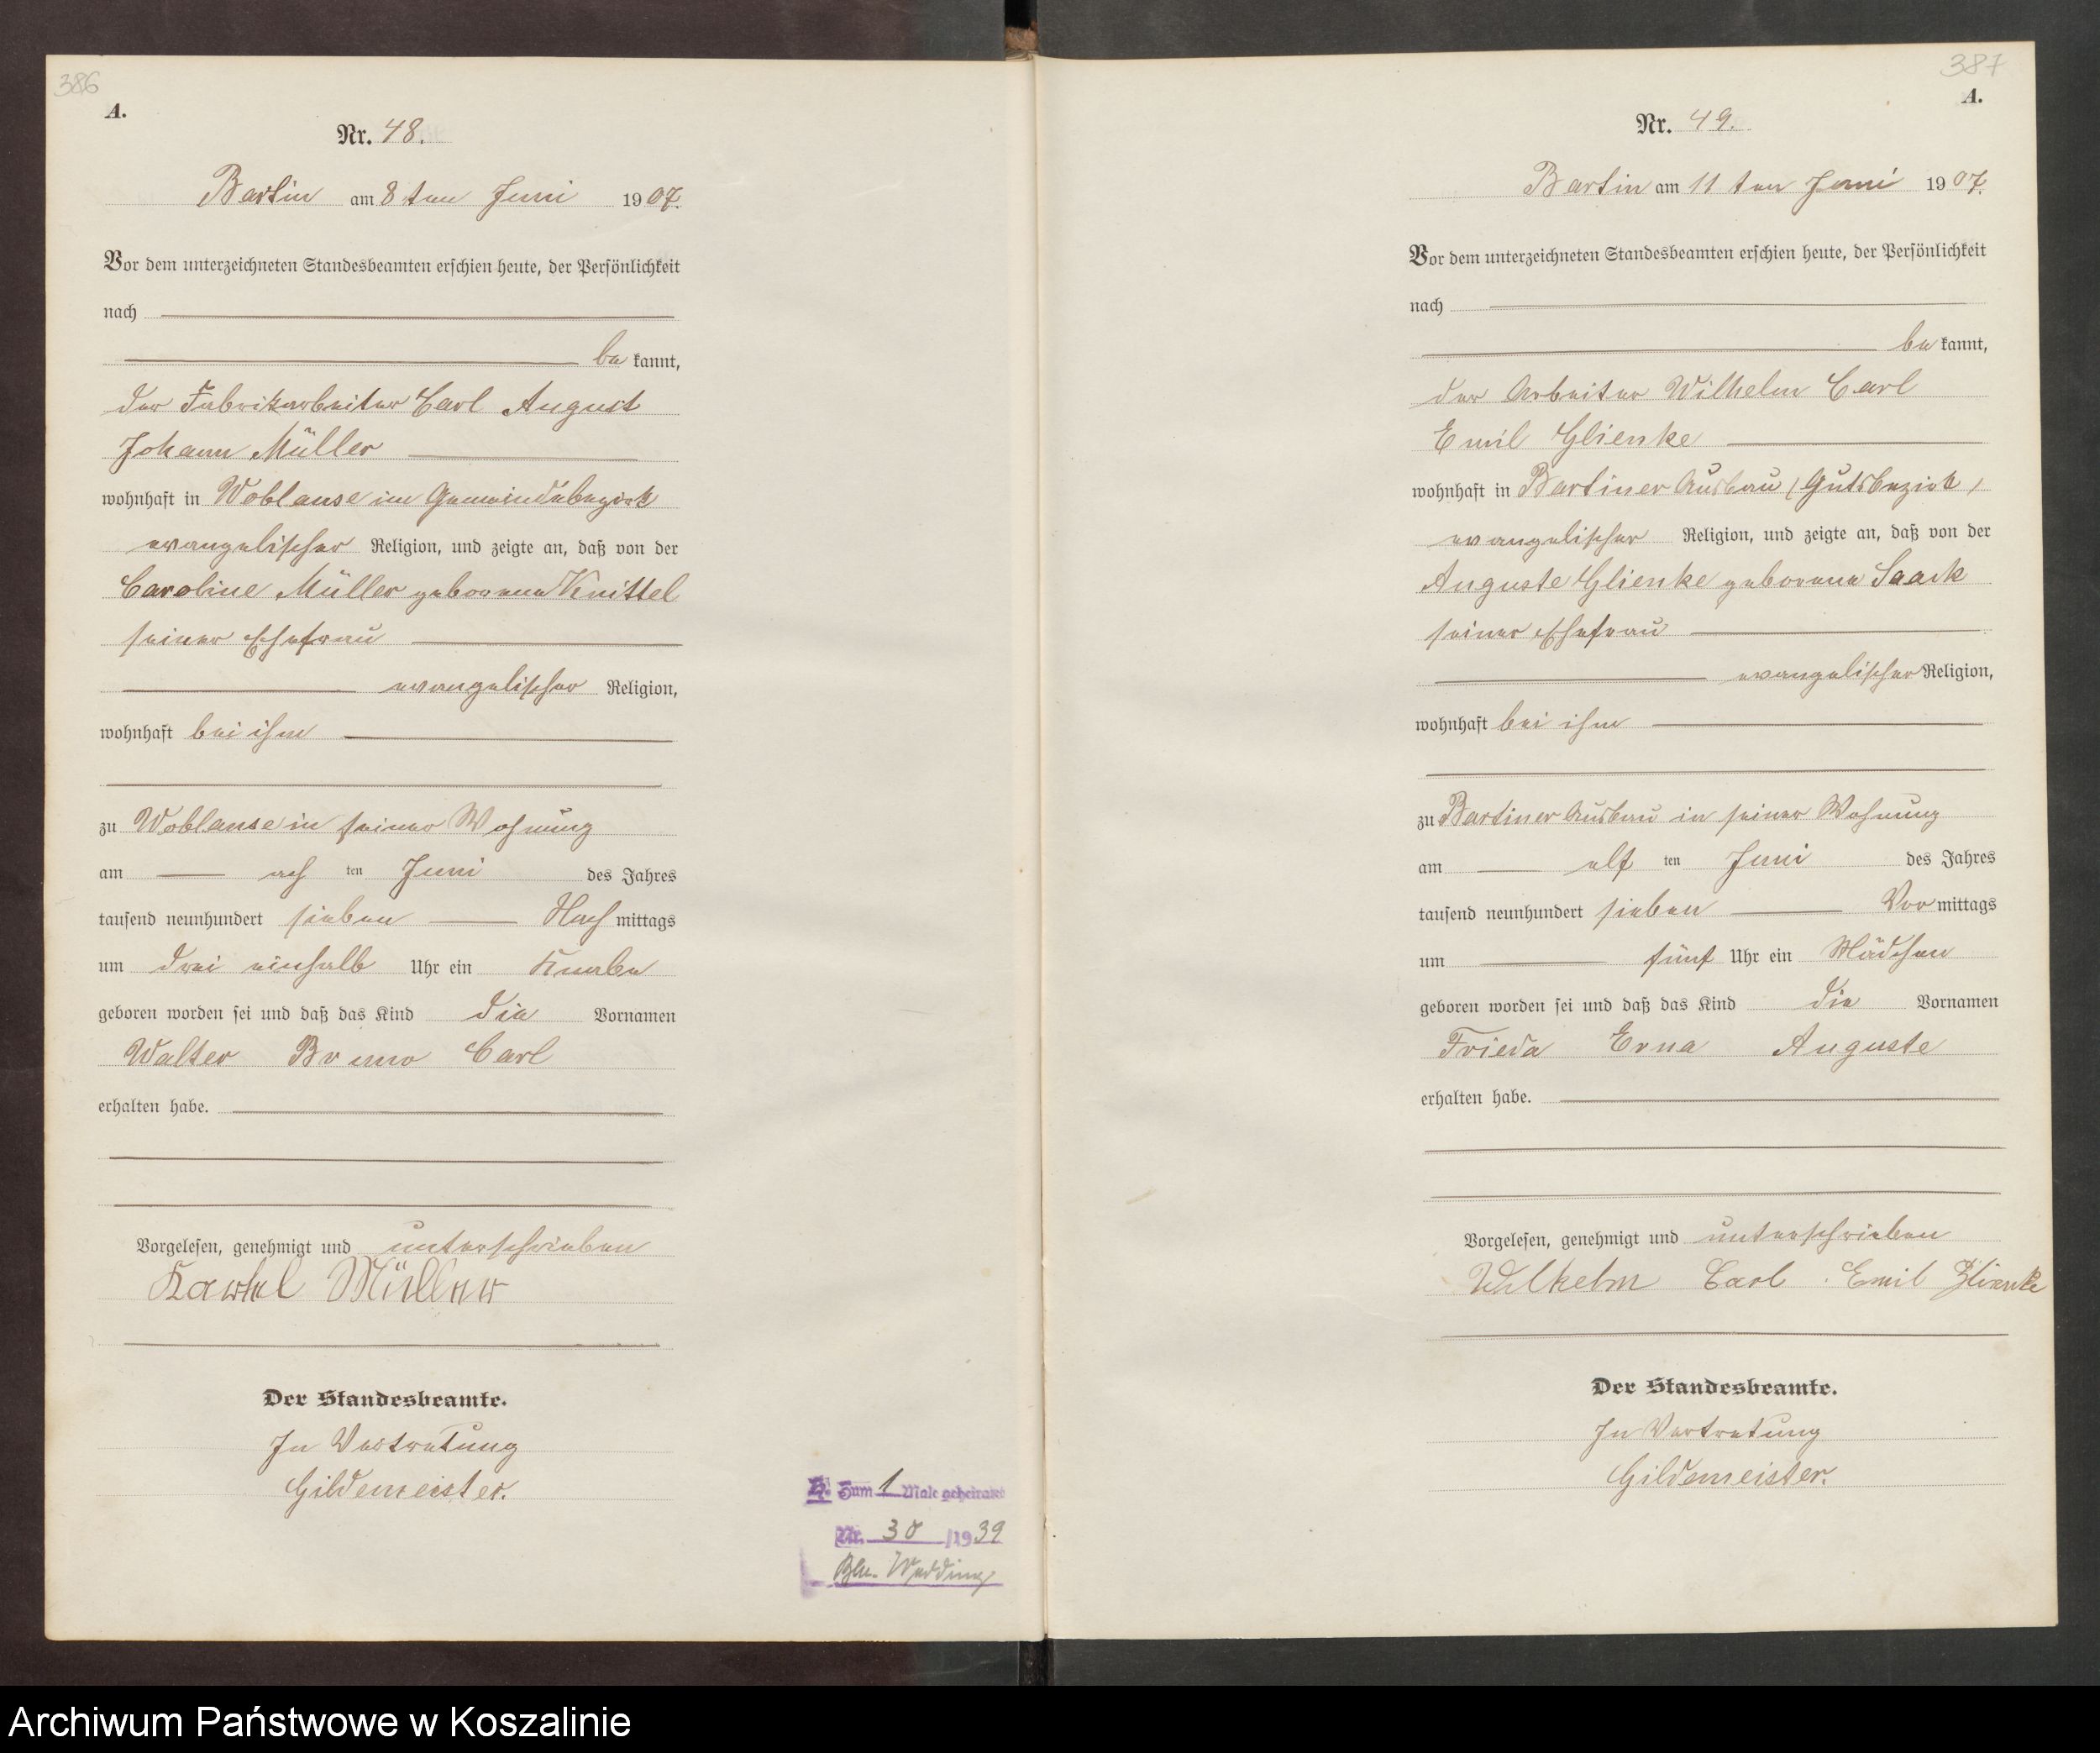 386
A.
Nr. 48.
Bartin am 8 ten Juni 1907.
Vor dem unterzeichneten Standesbeamten erschien heute, der Persönlichkeit
nach
be kannt,
der Fabrikarbeiter Carl August
Johann Müller
wohnhaft in Woblanse im Gemeindebezirk
evangelischer Religion, und zeigte an, daß von der
Caroline Müller geborene Knittel
seiner Ehefrau
evangelischer Religion,
wohnhaft bei ihm
zu Woblanse in seiner Wohnung
am ach ten Juni des Jahres
tausend neunhundert sieben Nach mittags
um drei einhalb Uhr ein Knabe
geboren worden sei und daß das Kind die Vornamen
Walter Bruno Carl
erhalten habe.
Vorgelesen, genehmigt und unterschrieben
Müller
Der Standesbeamte.
In Vertretung
Gildemeister.
Zum 1 Male geheiratet
Nr. 30 /1939
Bln. Wedding
387
A.
Nr. 49.
Bartin am 11 ten Juni 1907.
Vor dem unterzeichneten Standesbeamten erschien heute, der Persönlichkeit
nach
be kannt,
der Arbeiter Wilhelm Carl
Emil Glienke
wohnhaft in Bartiner Ausbau (Gutsbezirk)
evangelischer Religion, und zeigte an, daß von der
Auguste Glienke geborene Saack
seiner Ehefrau
evangelischer Religion,
wohnhaft bei ihm
zu Bartiner Ausbau in seiner Wohnung
am elf ten Juni des Jahres
tausend neunhundert sieben Vor mittags
um fünf Uhr ein Mädchen
geboren worden sei und daß das Kind die Vornamen
Frieda Erna Auguste
erhalten habe.
Vorgelesen, genehmigt und unterschrieben
Wilhelm Carl Emil Glienke
Der Standesbeamte.
In Vertretung
Gildemeister.
Archiwum Państwowe w Koszalinie